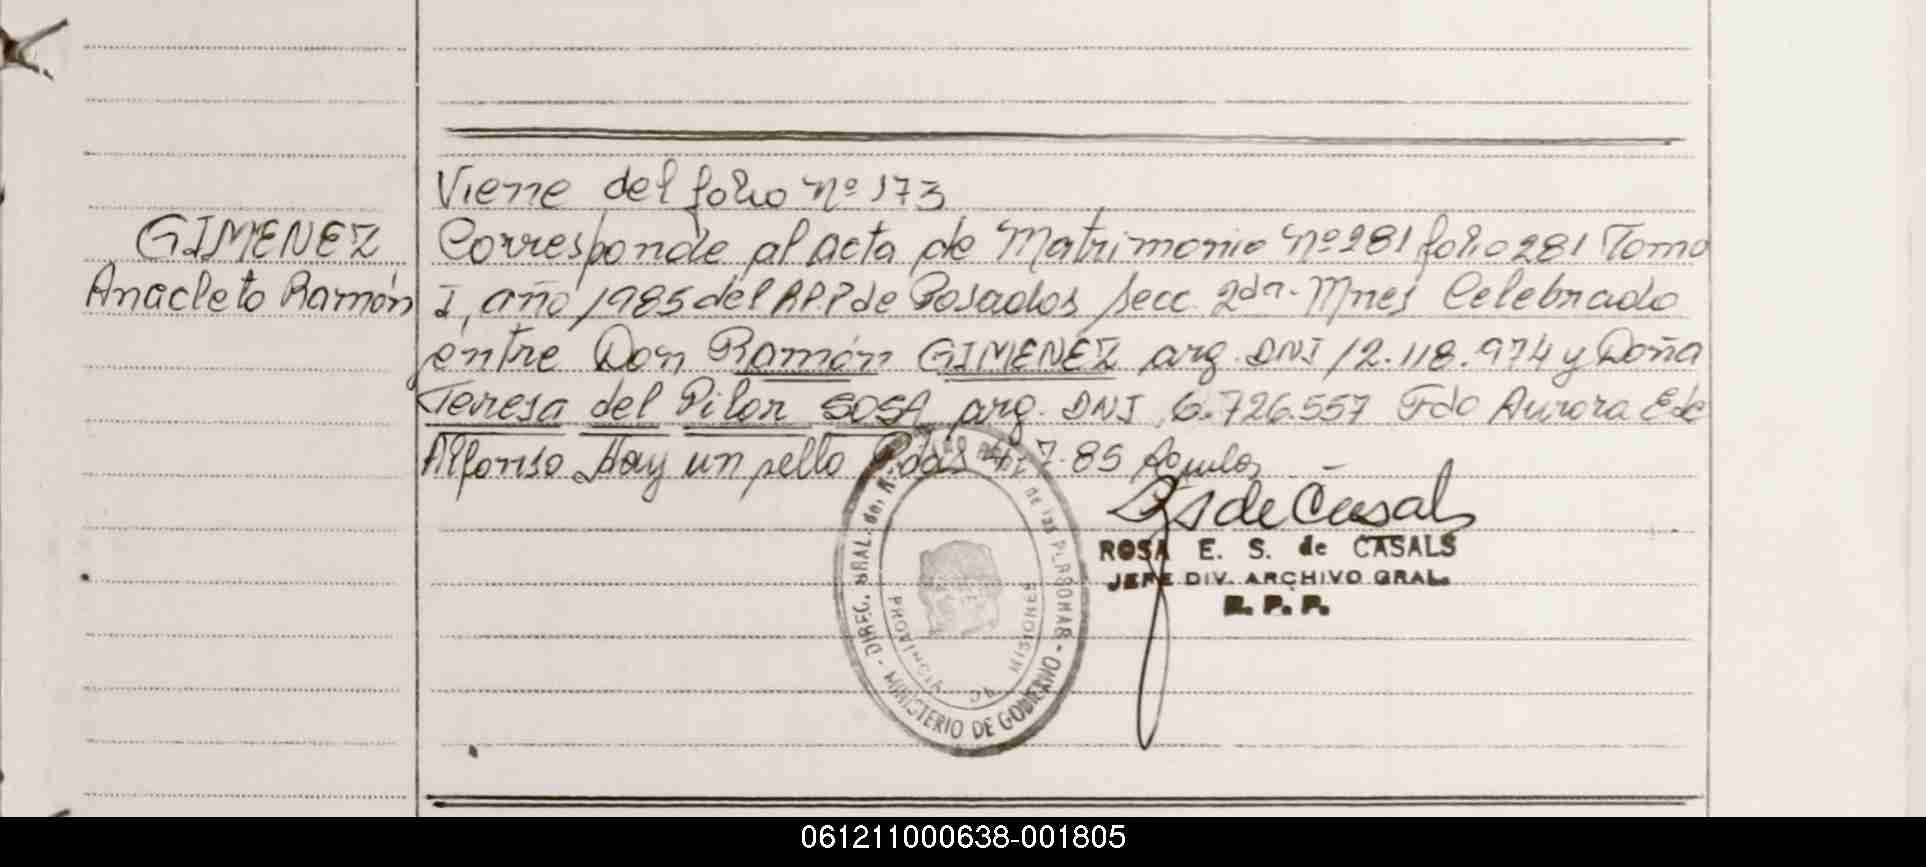 Viene del folio Nº 173
GIMENEZ
Anacleto Ramón
Corresponde al acta de Matrimonio Nº 281 folio 281 Tomo
I, año 1985 del R.P.P de Posadas Secc. 2da. Mnes Celebrado
entre Don Ramón GIMENEZ arg. DNI 12.118.974 y Doña
Teresa del Pilar SOSA arg. DNI 6.726.557 Fdo Aurora E de
Alfonso Hay un sello Pdas 7.85
Rs de Casals
ROSA E. S. de CASALS
JEFE DIV. ARCHIVO GRAL.
R. P. P.
DIREC. GRAL. del de las PERSONAS - MINISTERIO DE GOBIERNO -
PROVINCIA DE MISIONES
061211000638-001805